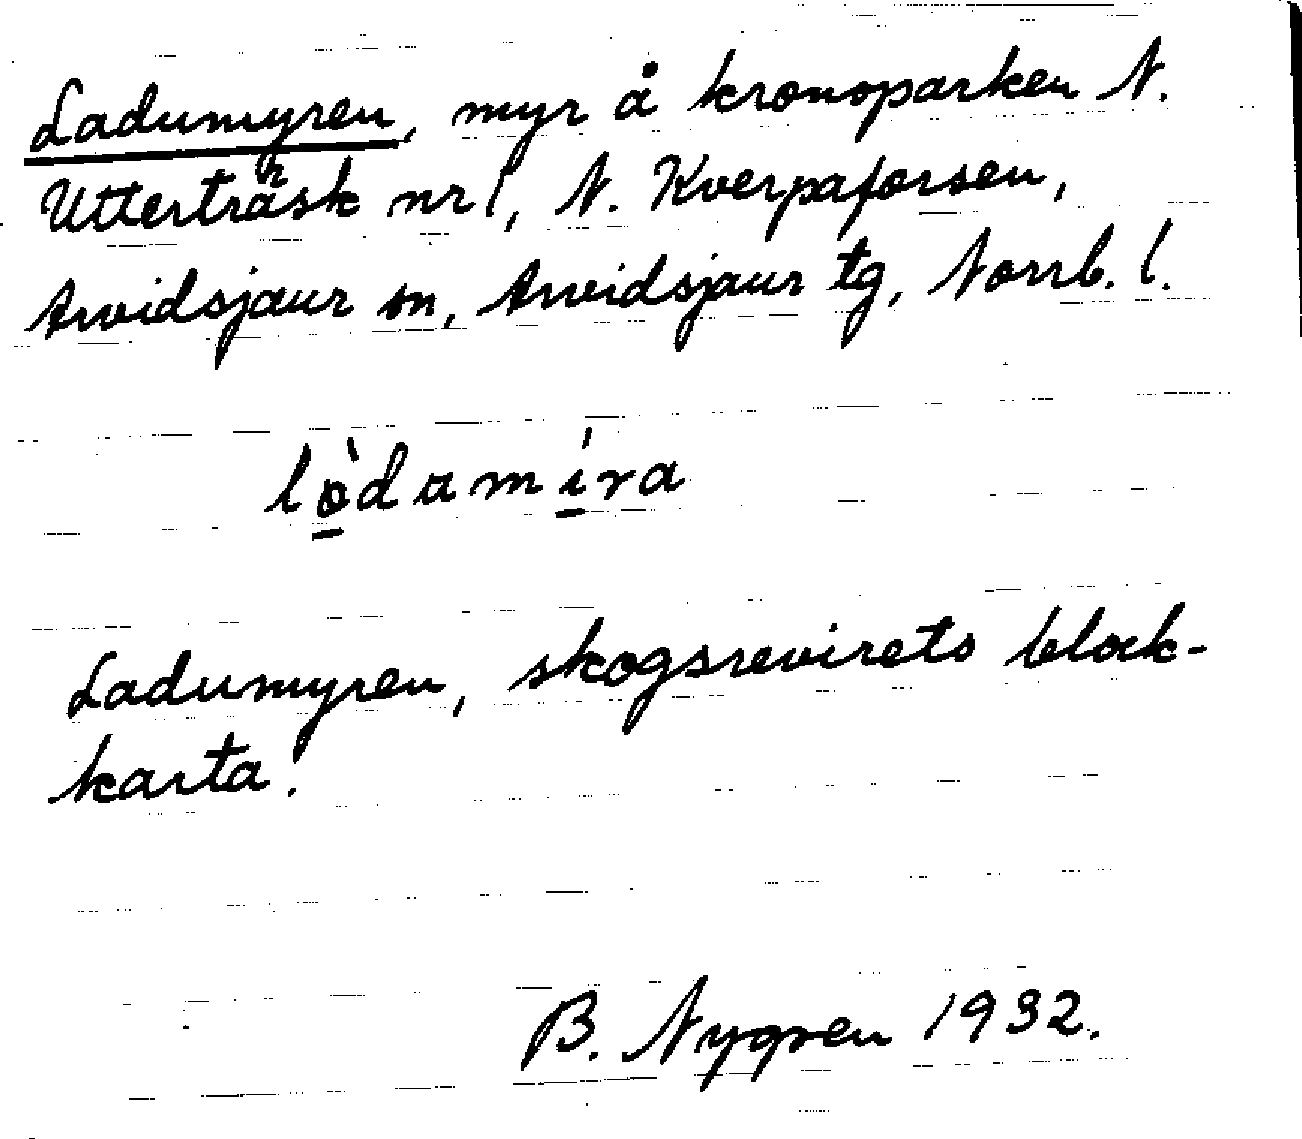 Ladumyren, myr å kronoparken N.
Utterträsk nr 1, N. Kverpaforsen,
Arvidsjaur sn, Arvidsjaur tg, Norrb. l.
lòdamíra
Ladumyren, skogsrevirets block-
karta.
B. Nygren 1932.